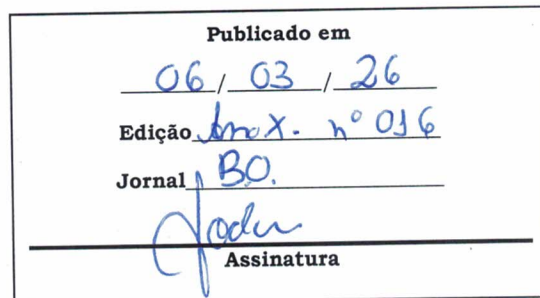 Publicado em
06 / 03 / 26
Edição Ano X. nº 016
Jornal B.O.
Assinatura